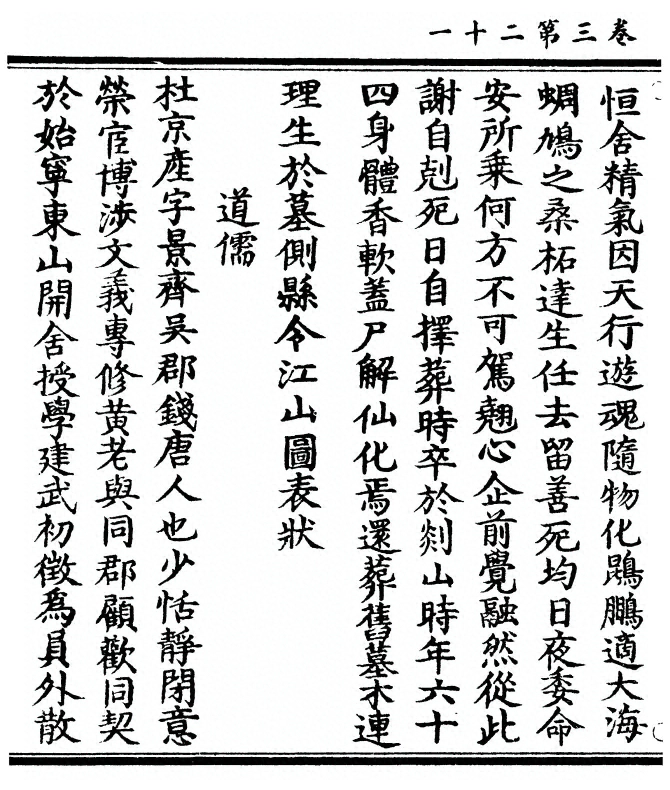 卷三第二十一
恒舍精氣因天行遊魂隨物化鵾鵬適大海
蜩鳩之桑柘達生任去留善死均日夜委命
安所乗何方不可駕翹心企前覺融然從此
謝自剋死日自擇葬時卒於剡山時年六十
四身體香軟蓋尸解仙化焉還葬舊墓木連
理生於墓側縣令江山圖表狀
道儒
杜京產字景齊吳郡錢唐人也少恬靜閉意
榮宦博涉文義專修黃老與同郡顧歡同契
於始寧東山開舍授學建武初徵爲員外散